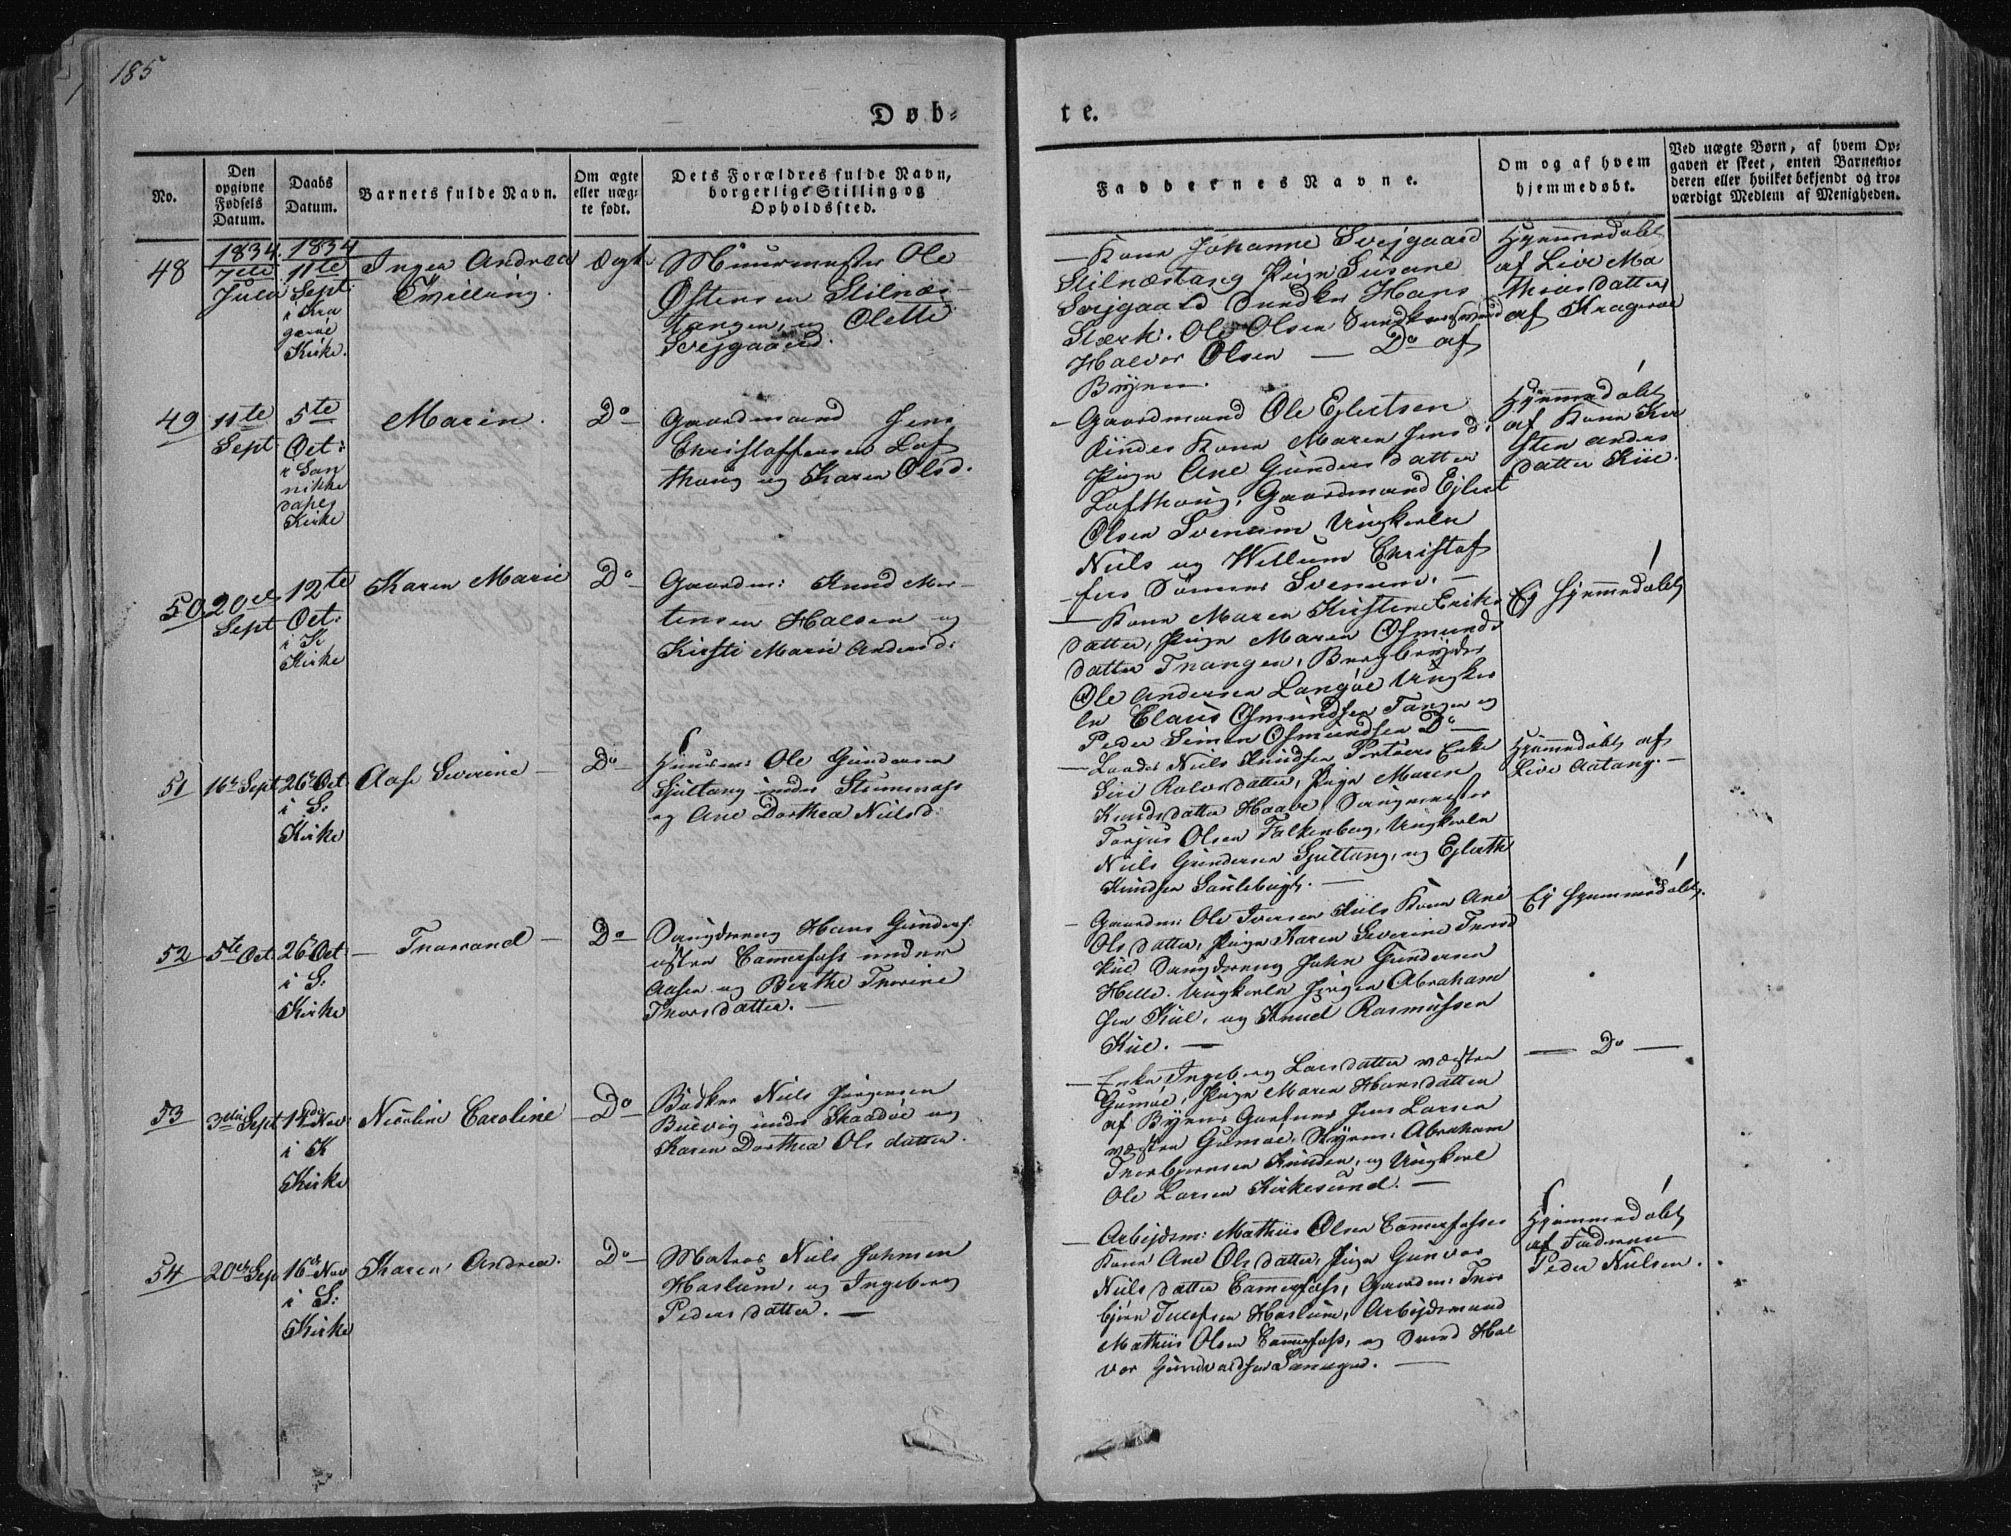 185
Døb-
te.
No.
Den
opgivne
Fødsels
Datum.
Daabs
Datum.
Barnets fulde Navn.
Om ægte
eller uæg-
te født.
Dets Forældres fulde Navn,
borgerlige Stilling og
Opholdssted.
Faddernes Navne.
Om og af hvem
hjemmedøbt.
Ved uægte Børn, af hvem Op-
gaven er skeet, enten Barnemo-
deren eller hvilket bekjendt og tro-
værdigt Medlem af Menigheden.
48
1834.
7de
Julii
1834
11te
Sept:
i Kra
gerøe
Kirke.
Inger Andrea
Tvilling.
Ægte
Muurmester Ole
Østensen Stilnæs-
tangen, og Olette
Svejgaard.
Kone Johanne Svejgaard
Stilnæstang Pige Susane
Svejgaard Hans
Stærk. Ole Olsen
Halvor Olsen — Do af
Byen.
Hjemmedøbt
af Live Ma
thiasdatter
af Kragerøe
49
11te
Sept
5te
Oct:
i San
nikke
dahls
Kirke
Maren.
Do
Gaardmand Jens
Christoffersen Lof
thoug og Karen Olsd.
Gaardmand Ole Ejlertsen
Kone Maren Jensd:
Pige Ane Gundersdatter
Lofthoug, Gaardmand Ejlert
Olsen Svenum Ungkarle
Niels og Willum Christof
fers Sønner Svenum. —
Hjemmedøbt
af Kone Kir
sten Anders
datter Kiil.
50
20de
Sept
12te
Oct:
i K
Kirke
Karen Marie
Do
Gaardm: Knud Mor-
tensen Halsen og
Kirsti Marie Andersd:
Kone Maren Kirstine Eriks
datter, Pige Maren Osmunds
datter Trangen,
Ole Andersen Langøe Ungkar
le Claus Osmundsen Tangen og
Peder Simen Osmundsen Do —
Ej Hjemmedøbt
51
16de Sept
26de Oct
i S:
Kirke
Aase Severine —
Do
Huusm: Ole Gundersen
Spiltang under Stumnæss
og Ane Dorthea Nielsd:
Niels Knudsen Portøers Enke
Siri Rolvsdatter, Pige Maren
Knudsdatter Haave,
Torjus Olsen Falkenberg, Ungkarle
Niels Gundersen Spiltang, og Ejlerth
Knudsen Saulebugt. —
Hjemmedøbt af
Live Aatang. —
52
5te Oct
26de Oct
i S:
Kirke
— Thorvand —
Do
Hans Gunders:
østre Camerfoss under
Aasen og Berthe Thorine
Thorsdatter. —
Gaardm: Ole Iversen Kiils Kone Ane
Olsdatter, Pige Karen Severine Thors
Kiil John Gundersen
Helle. Ungkarle Jørgen Abraham
sen Kiil, og Knud Rasmussen
Kiil. —
Ej Hjemmedøbt.
53
3die Sept
14de Nov
i K
Kirke
Nicoline Caroline
Do
Bødker Niels Jørgensen
Buevig under Skaadøe og
Karen Dorthea Olsdatter.
Enke Ingeborg Larsdatter væstre
Gumøe, Pige Maren Hansdatter
af Byen, Jens Larsen
væstre Gumøe, Styrm: Abraham
Thorbjørnsen Kinden, og Ungkarl
Ole Larsen Kirkesund. —
— Do —
54
20de Sep
16de Nov
i S:
Kirke
Karen Andrea.
Do
Matros Niels Johnsen
Haslum, og Ingeborg
Pedersdatter. —
Arbejdsm: Mathiis Olsen Camerfosses
Kone Ane Olsdatter, Pige Gunvor
Nielsdatter Camerfoss, Gaardm: Thor
bjørn Tellefsen Haslum, Arbejdsmand
Mathiis Olsen Camerfoss, og Hal
vor Gundvaldsen
Hjemmedøbt
af Faderen
Peder Nielsen.